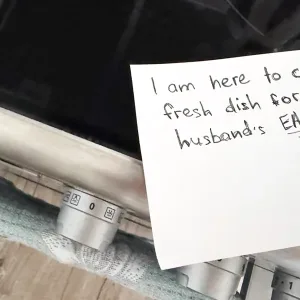 I am here to
fresh dish for
husband's EA
0
1